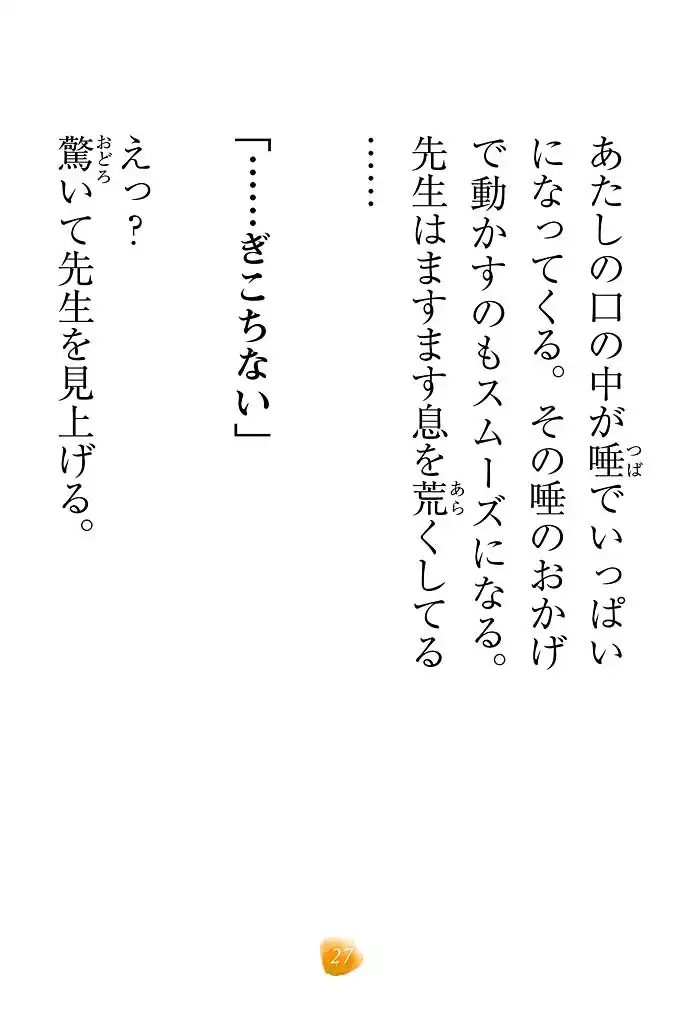 あたしの口の中が唾でいっぱい
になってくる。その唾のおかげ
で動かすのもスムーズになる。
先生はますます息を荒くしてる
……
「……ぎこちない」
えっ?
驚いて先生を見上げる。
27